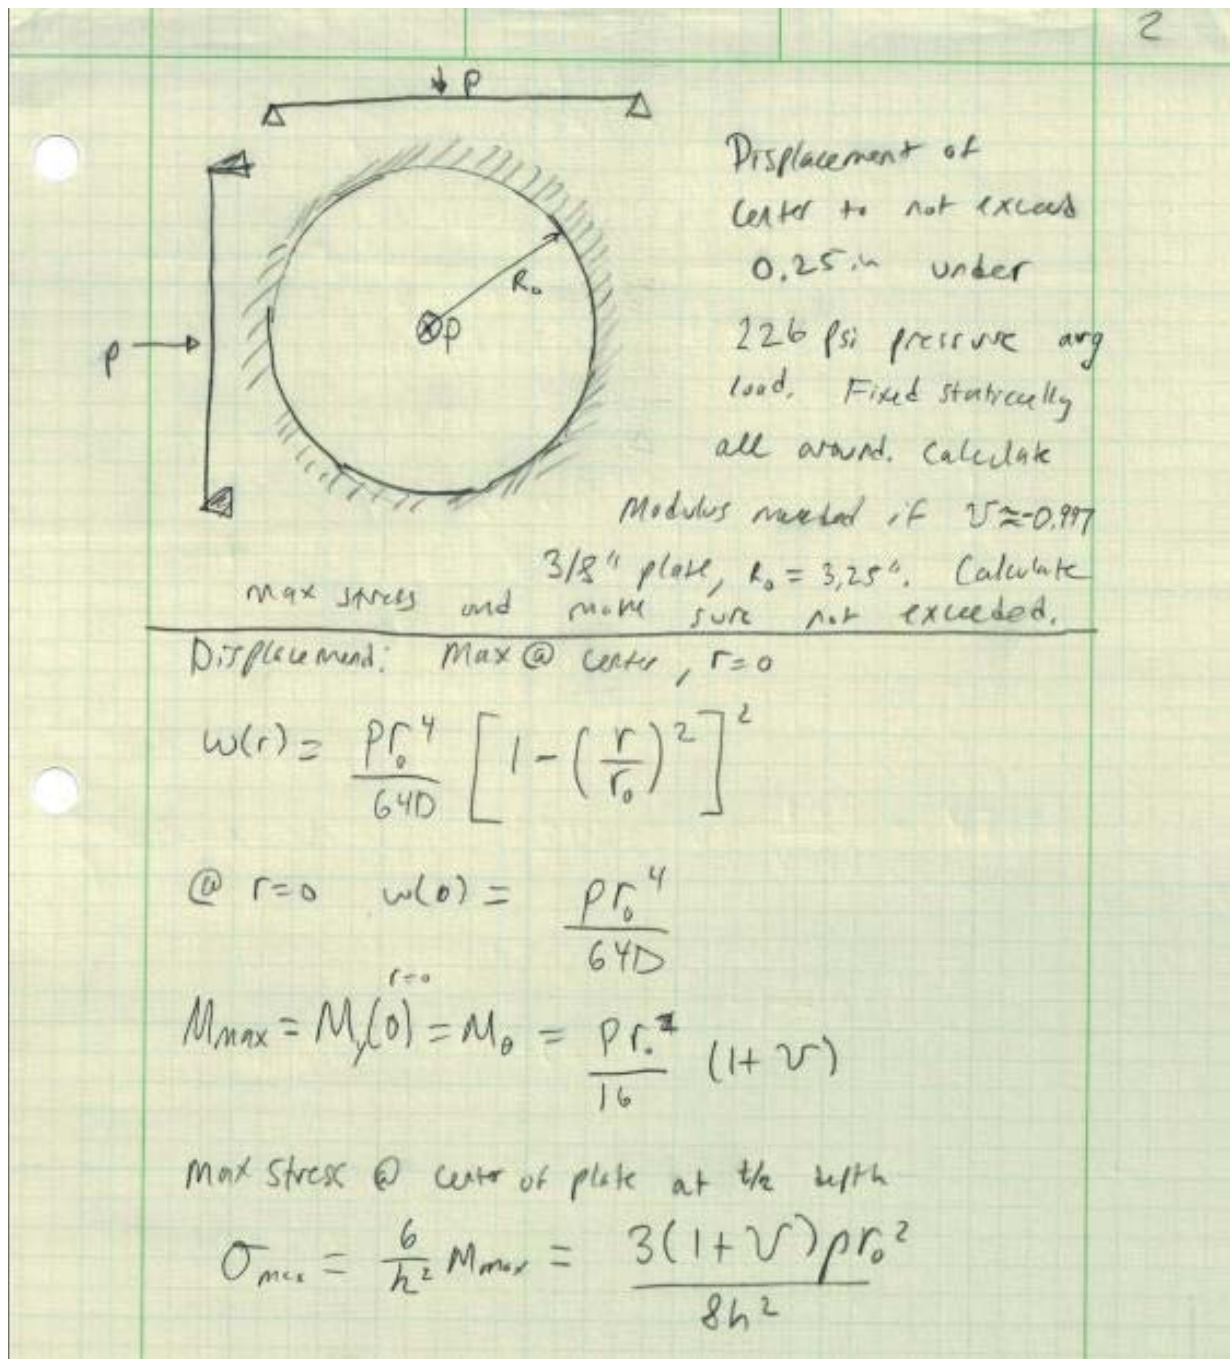 2
↓ P
Displacement of
center to not exceed
0.25 in under
R₀
⊗p
226 psi pressure avg
p →
load. Fixed statically
all around. Calculate
Modulus needed if ν ≈ -0.997
3/8" plate, R₀ = 3.25". Calculate
max stress and make sure not exceeded.
Displacement: Max @ center, r=0
w(r) = pr₀⁴/64D [1 - (r/r₀)²]²
@ r=0 w(0) = pr₀⁴/64D
r=0
Mmax = Mr(0) = Mθ = pr₀²/16 (1+ν)
Max stress @ center of plate at t/2 depth
σmax = 6/h² Mmax = 3(1+ν)pr₀²/8h²